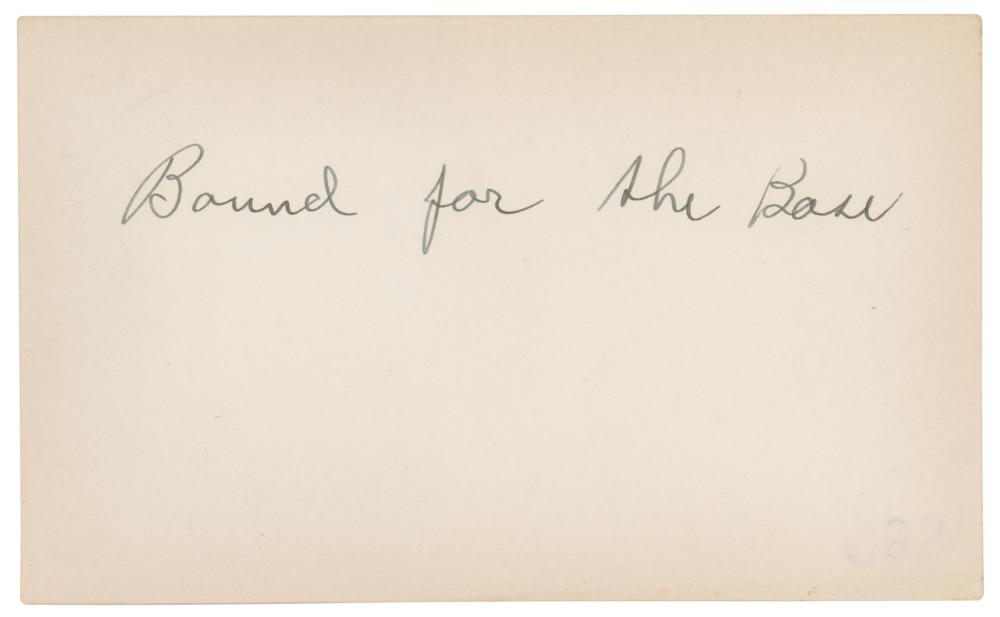 Bound for the Base